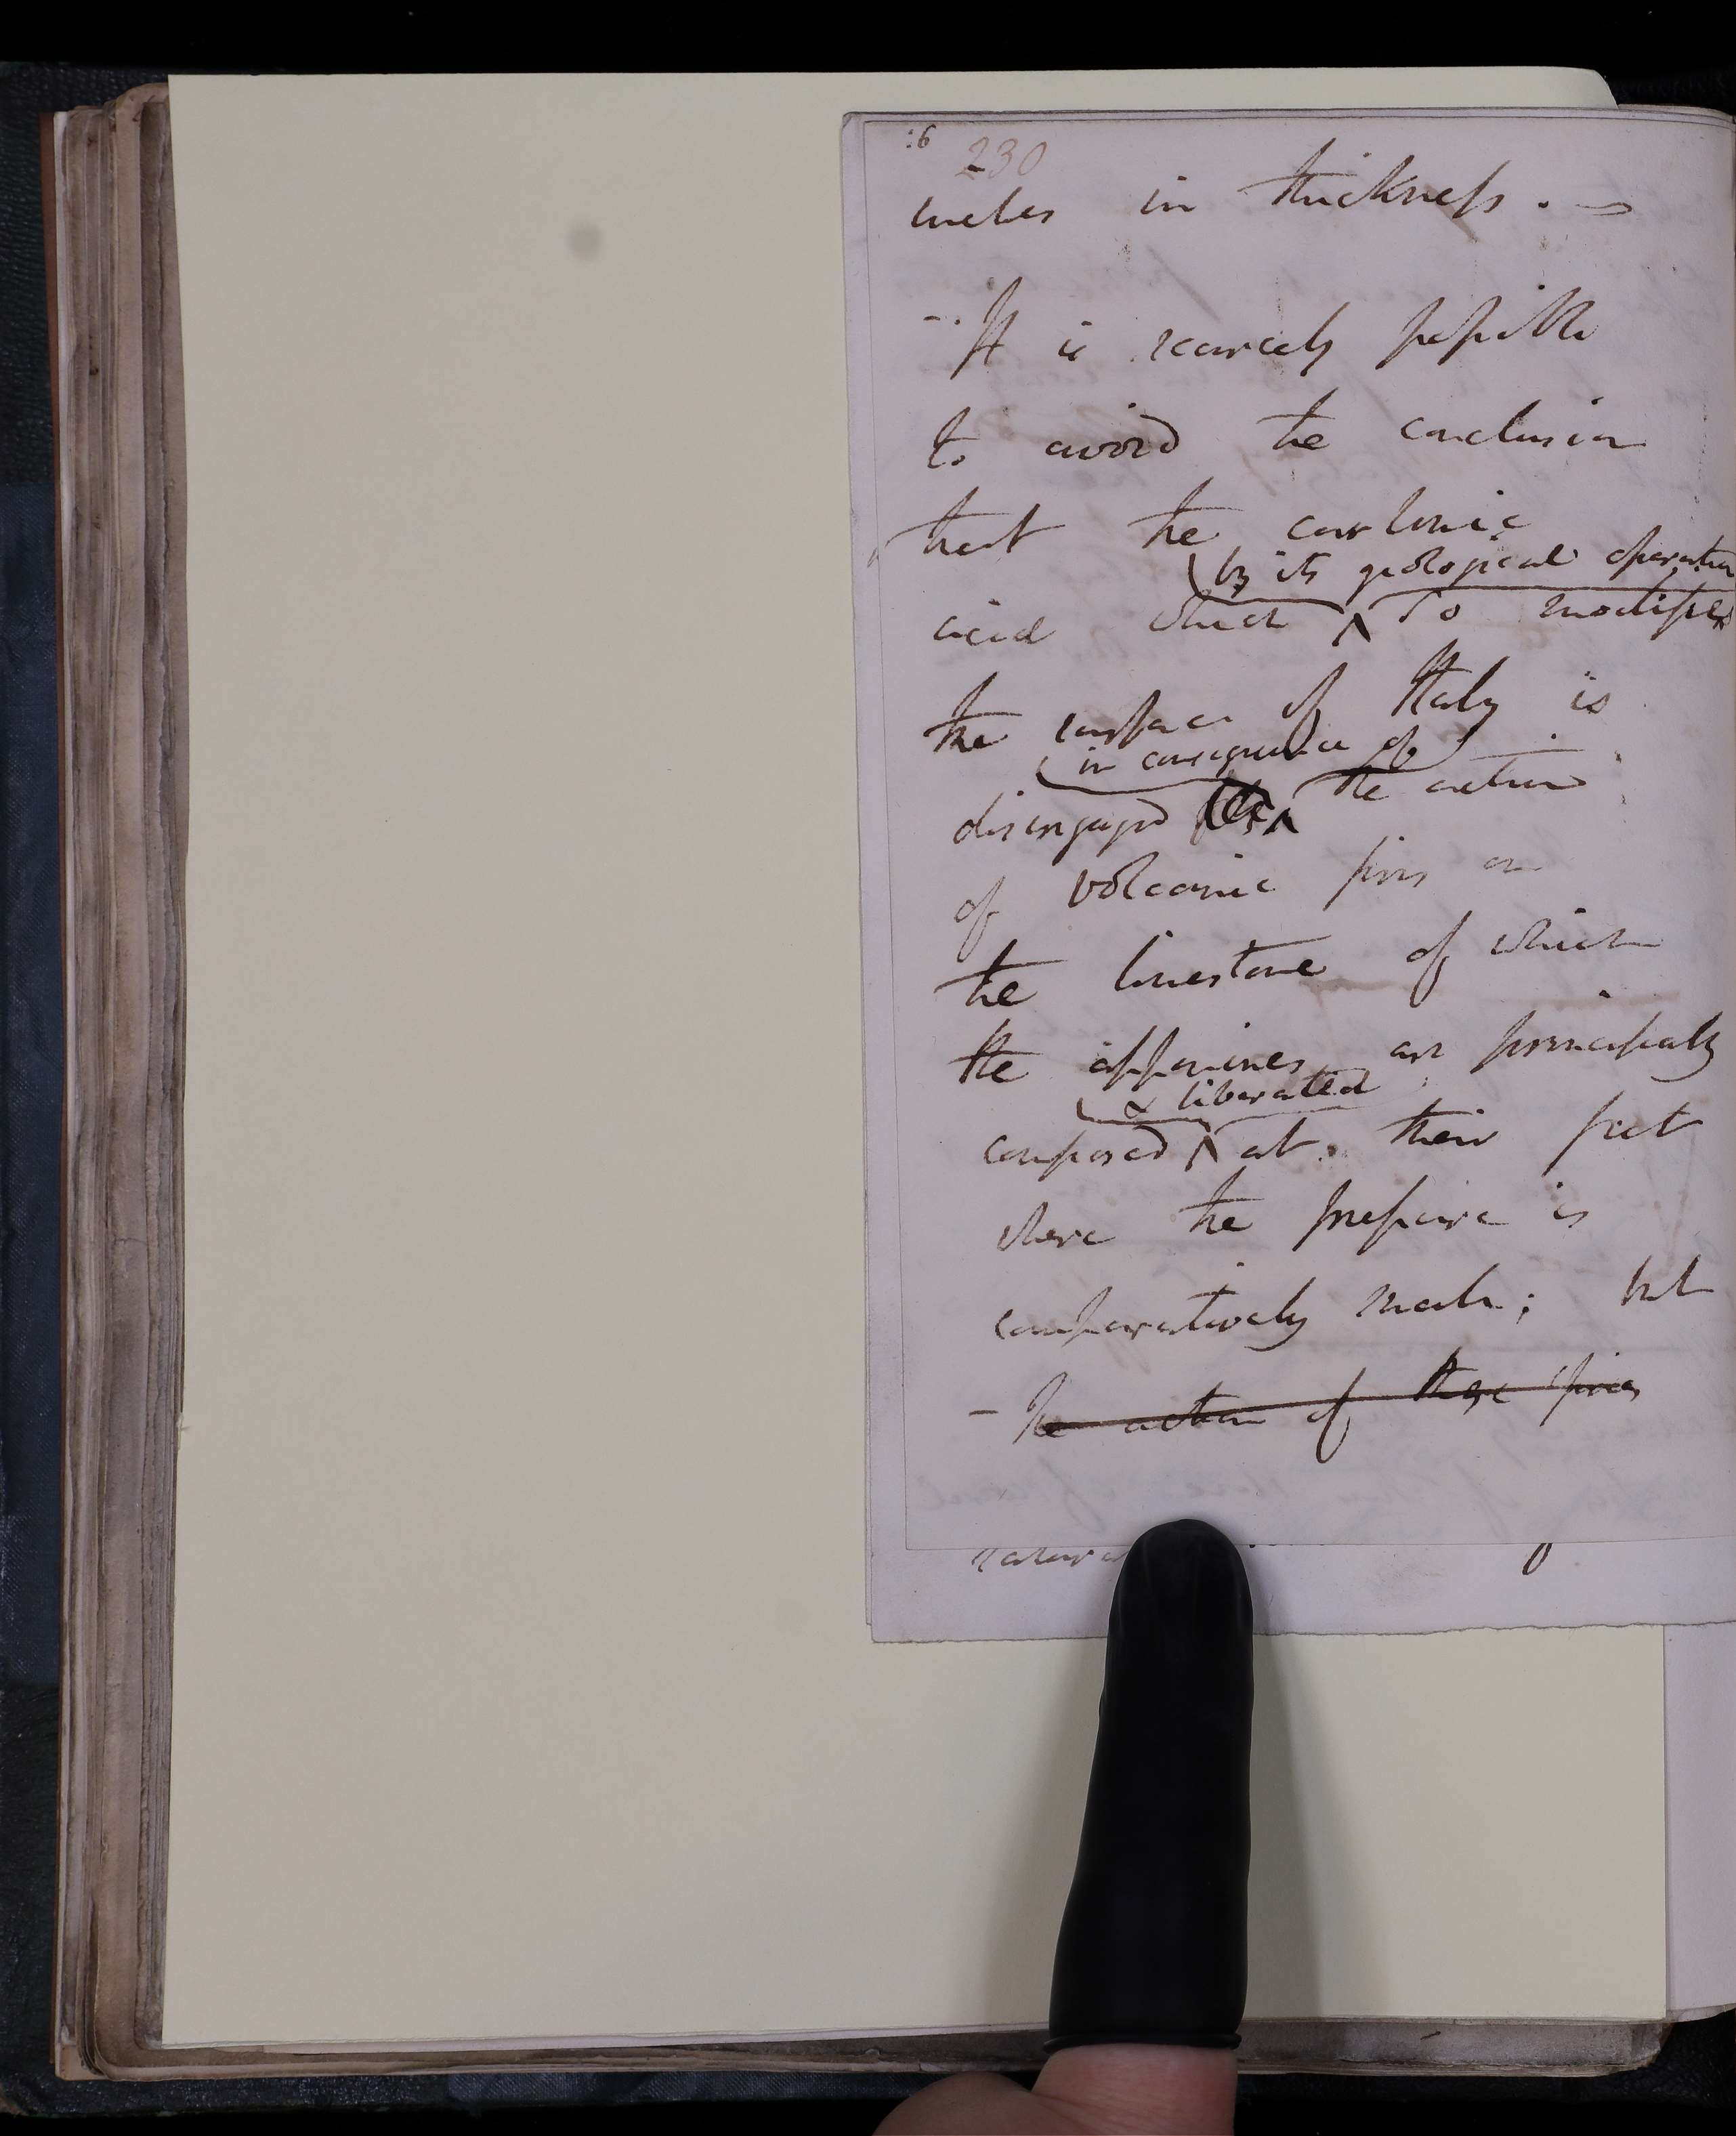 :6
230
inches in thickness. —
- It is scarcely possible
to avoid the conclusion
that the carbonic
by its geological operation
acid which ^ so modifies
the surface of Italy is
in consequence of
disengaged ^ the action
of volcanic fires on
the limestone of which
the appenines are principally
& liberated
composed ^ at their feet
where the pressure is
comparatively small; but
- The action of these fires